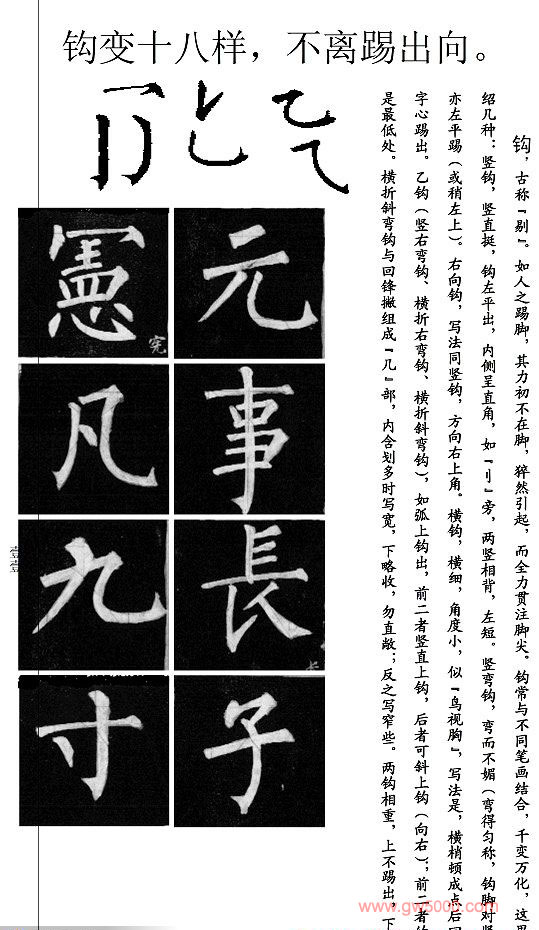 钩变十八样，不离踢出向。
钩，古称『剔』。如人之踢脚，其力初不在脚，猝然引起，而全力贯注脚尖。钩常与不同笔画结合，千变万化，这
绍几种：竖钩，竖直挺，钩左平出，内侧呈直角，如『刂』旁，两竖相背，左短。竖弯钩，弯而不媚（弯得匀称，钩脚对
亦左平踢（或稍左上）。右向钩，写法同竖钩，方向右上角。横钩，横细，角度小，似『鸟视胸』，写法是，横梢顿成点后
字心踢出。乙钩（竖右弯钩、横折右弯钩、横折斜弯钩），如弧上钩出，前二者竖直上钩，后者可斜上钩（向右）；前二者
是最低处。横折斜弯钩与回锋撇组成『几』部，内含划多时写宽，下略收，勿直敞；反之写窄些。两钩相重，上不踢出，下
元
事
長
长
子
憲
宪
凡
九
寸
壹壹
www.gw500b.com